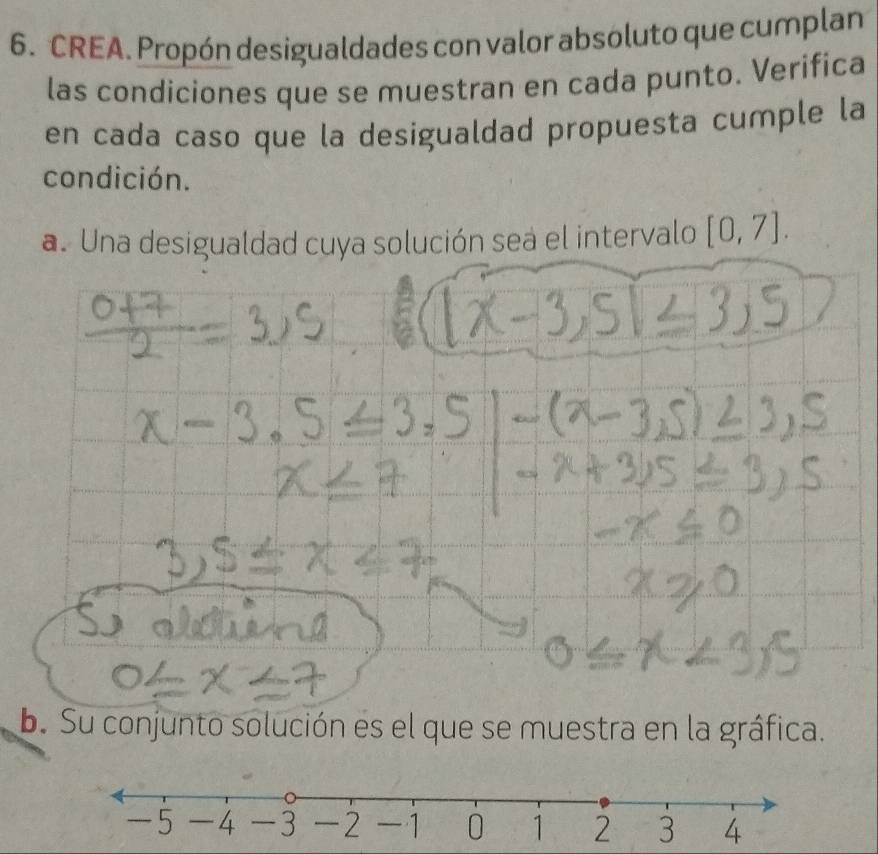 6. CREA. Propón desigualdades con valor absoluto que cumplan
las condiciones que se muestran en cada punto. Verifica
en cada caso que la desigualdad propuesta cumple la
condición.
a. Una desigualdad cuya solución sea el intervalo [0, 7].
0+7/2 = 3,5 (|x - 3,5| ≤ 3,5)
x - 3.5 ≤ 3,5 | -(x - 3,5) ≤ 3,5
x ≤ 7 | -x + 3,5 ≤ 3,5
-x ≤ 0
3,5 ≤ x ≤ 7
x ≥ 0
Se obtiene
0 ≤ x < 3,5
0 ≤ x ≤ 7
b. Su conjunto solución es el que se muestra en la gráfica.
-5 -4 -3 -2 -1 0 1 2 3 4